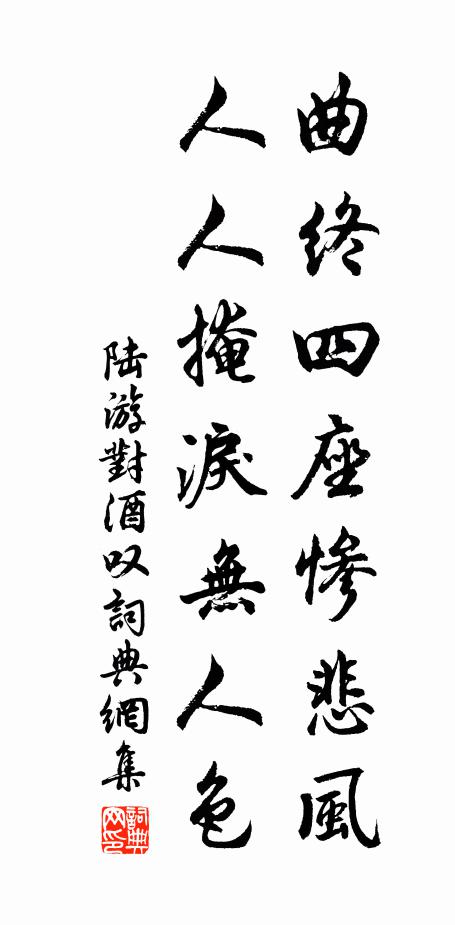 曲终四座惨悲風
人人掩淚無人色
陆游對酒叹詞典網集
詞典網印